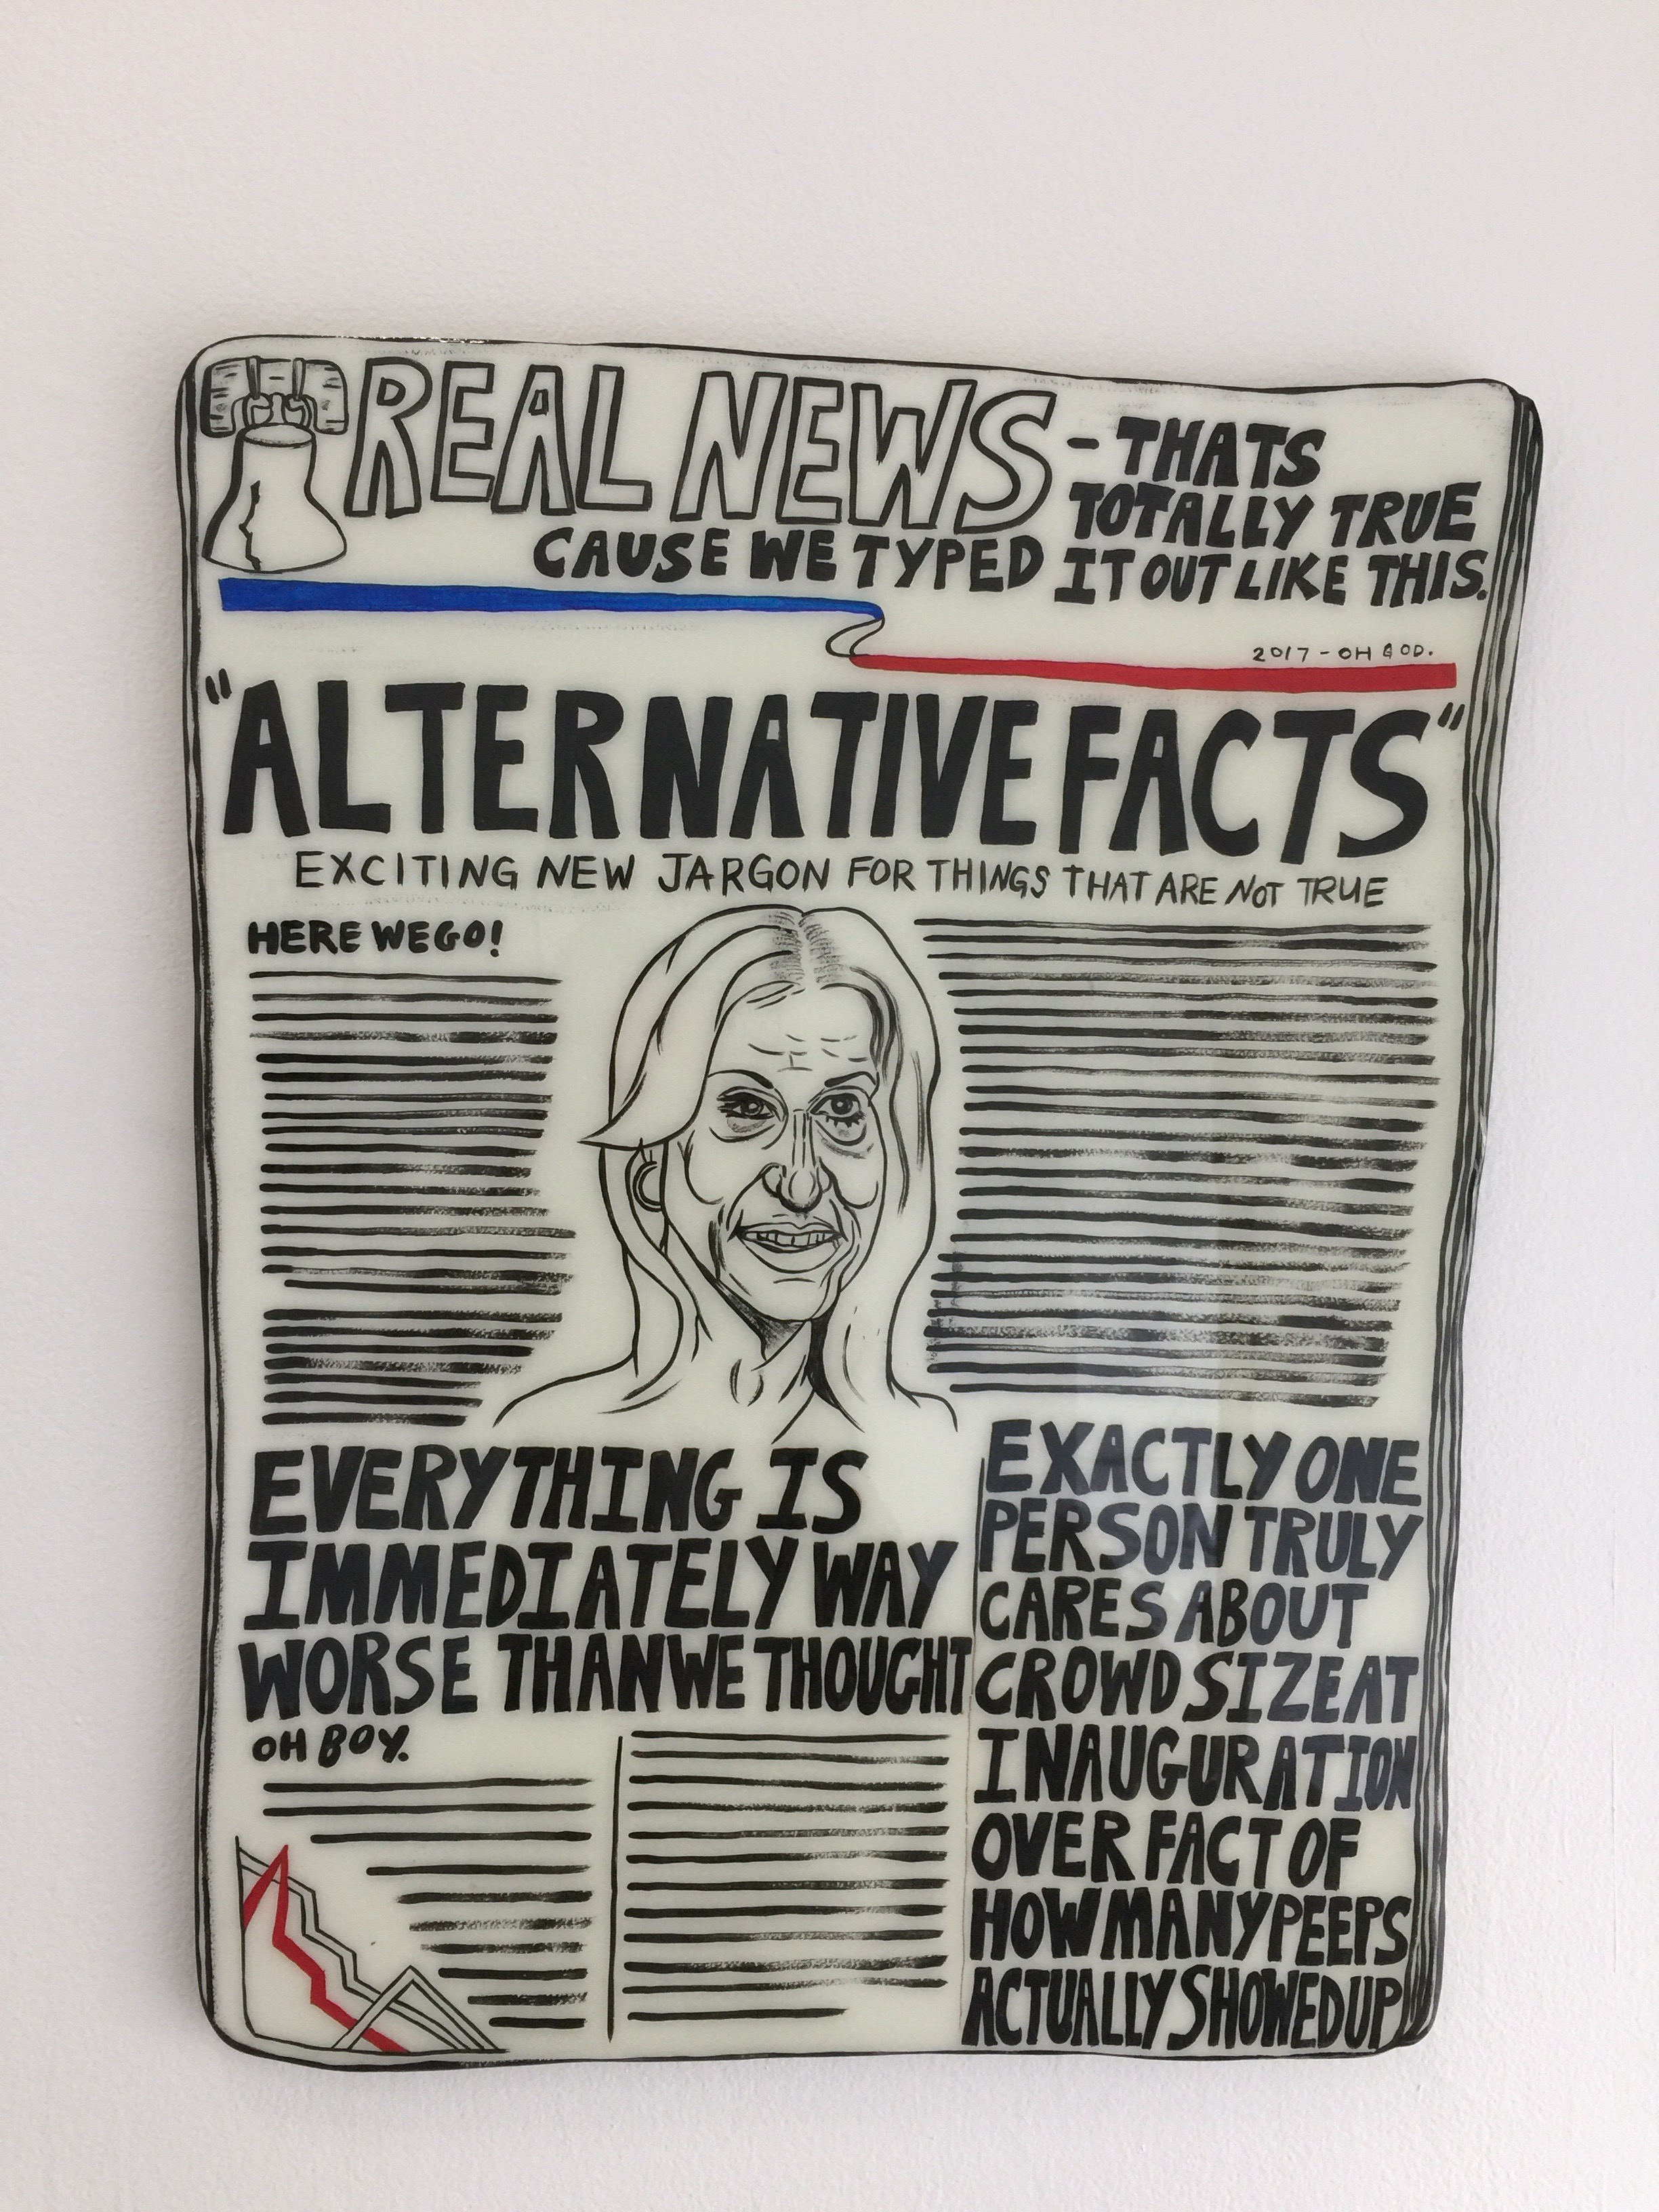 REAL NEWS - THATS
TOTALLY TRUE
CAUSE WE TYPED IT OUT LIKE THIS.
2017 - OH GOD.
"ALTERNATIVE FACTS"
EXCITING NEW JARGON FOR THINGS THAT ARE NOT TRUE
HERE WE GO!
EVERYTHING IS
IMMEDIATELY WAY
WORSE THAN WE THOUGHT
OH BOY.
EXACTLY ONE
PERSON TRULY
CARES ABOUT
CROWD SIZE AT
INAUGURATION
OVER FACT OF
HOW MANY PEEPS
ACTUALLY SHOWED UP